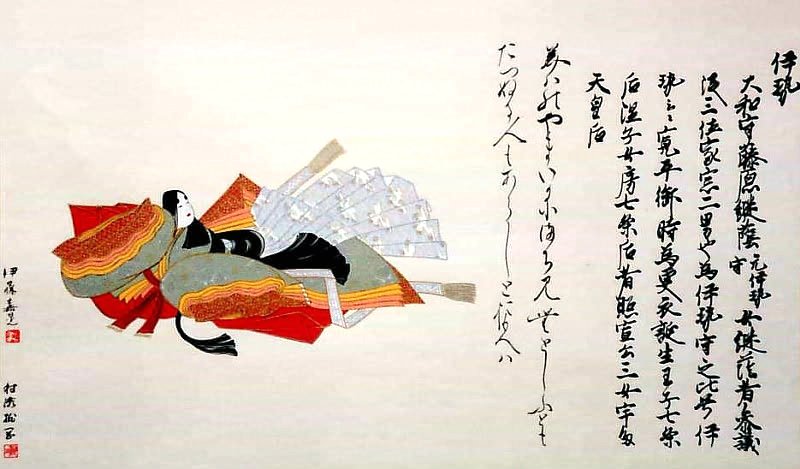 伊勢
大和守藤原継蔭 元伊勢守 女継蔭者参議
従三位家宗二男也為伊勢守之比号伊
勢云々寛平御時為更衣誕生王子七条
后温子女房七条后者昭宣公三女宇多
天皇后
美わのやまいかにまち見むとしふとも
たつぬる人もあらしとおもへは